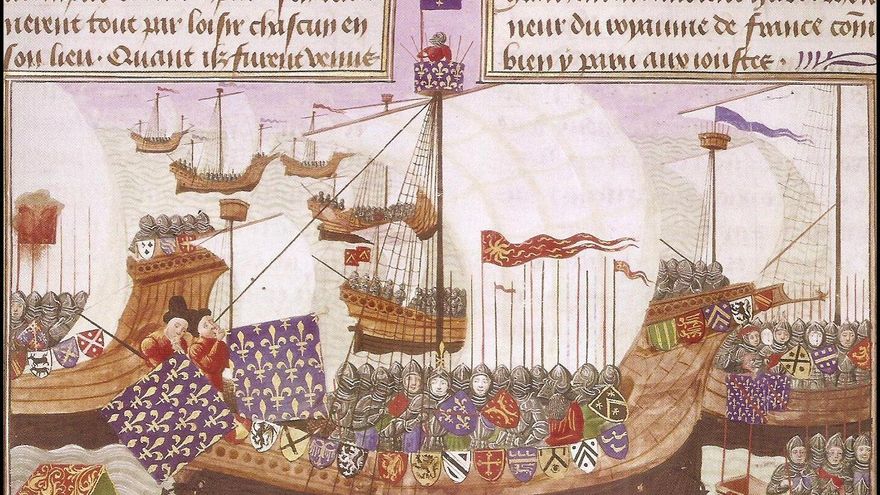 nerent tout par loisir chascun en
son lieu. Quant ilz furent venus
neur du royaume de france com
bien y paru aux ioustes.